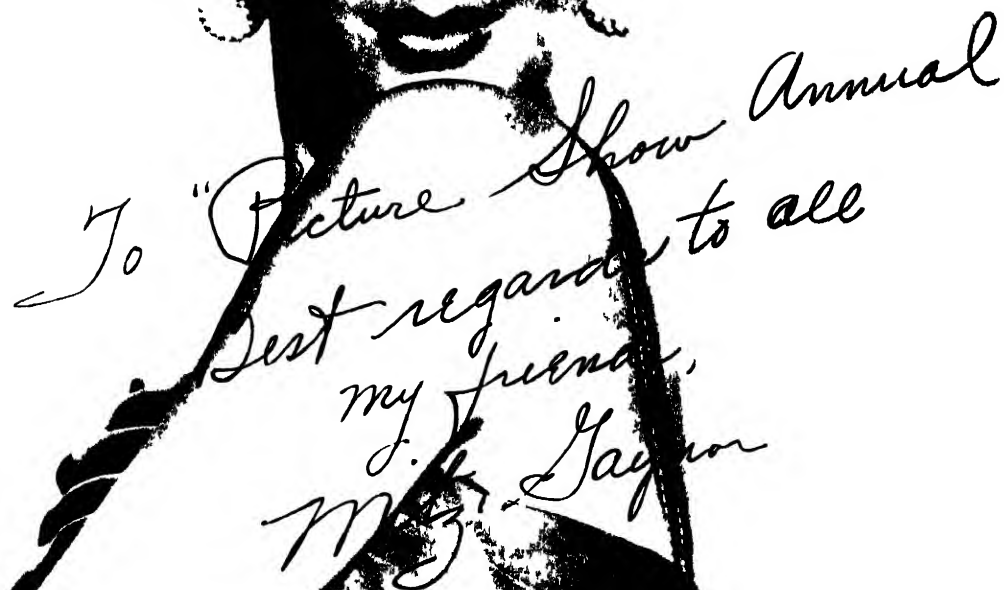 To "Picture Show Annual
Best regards to all
my friends,
Mitzi Gaynor